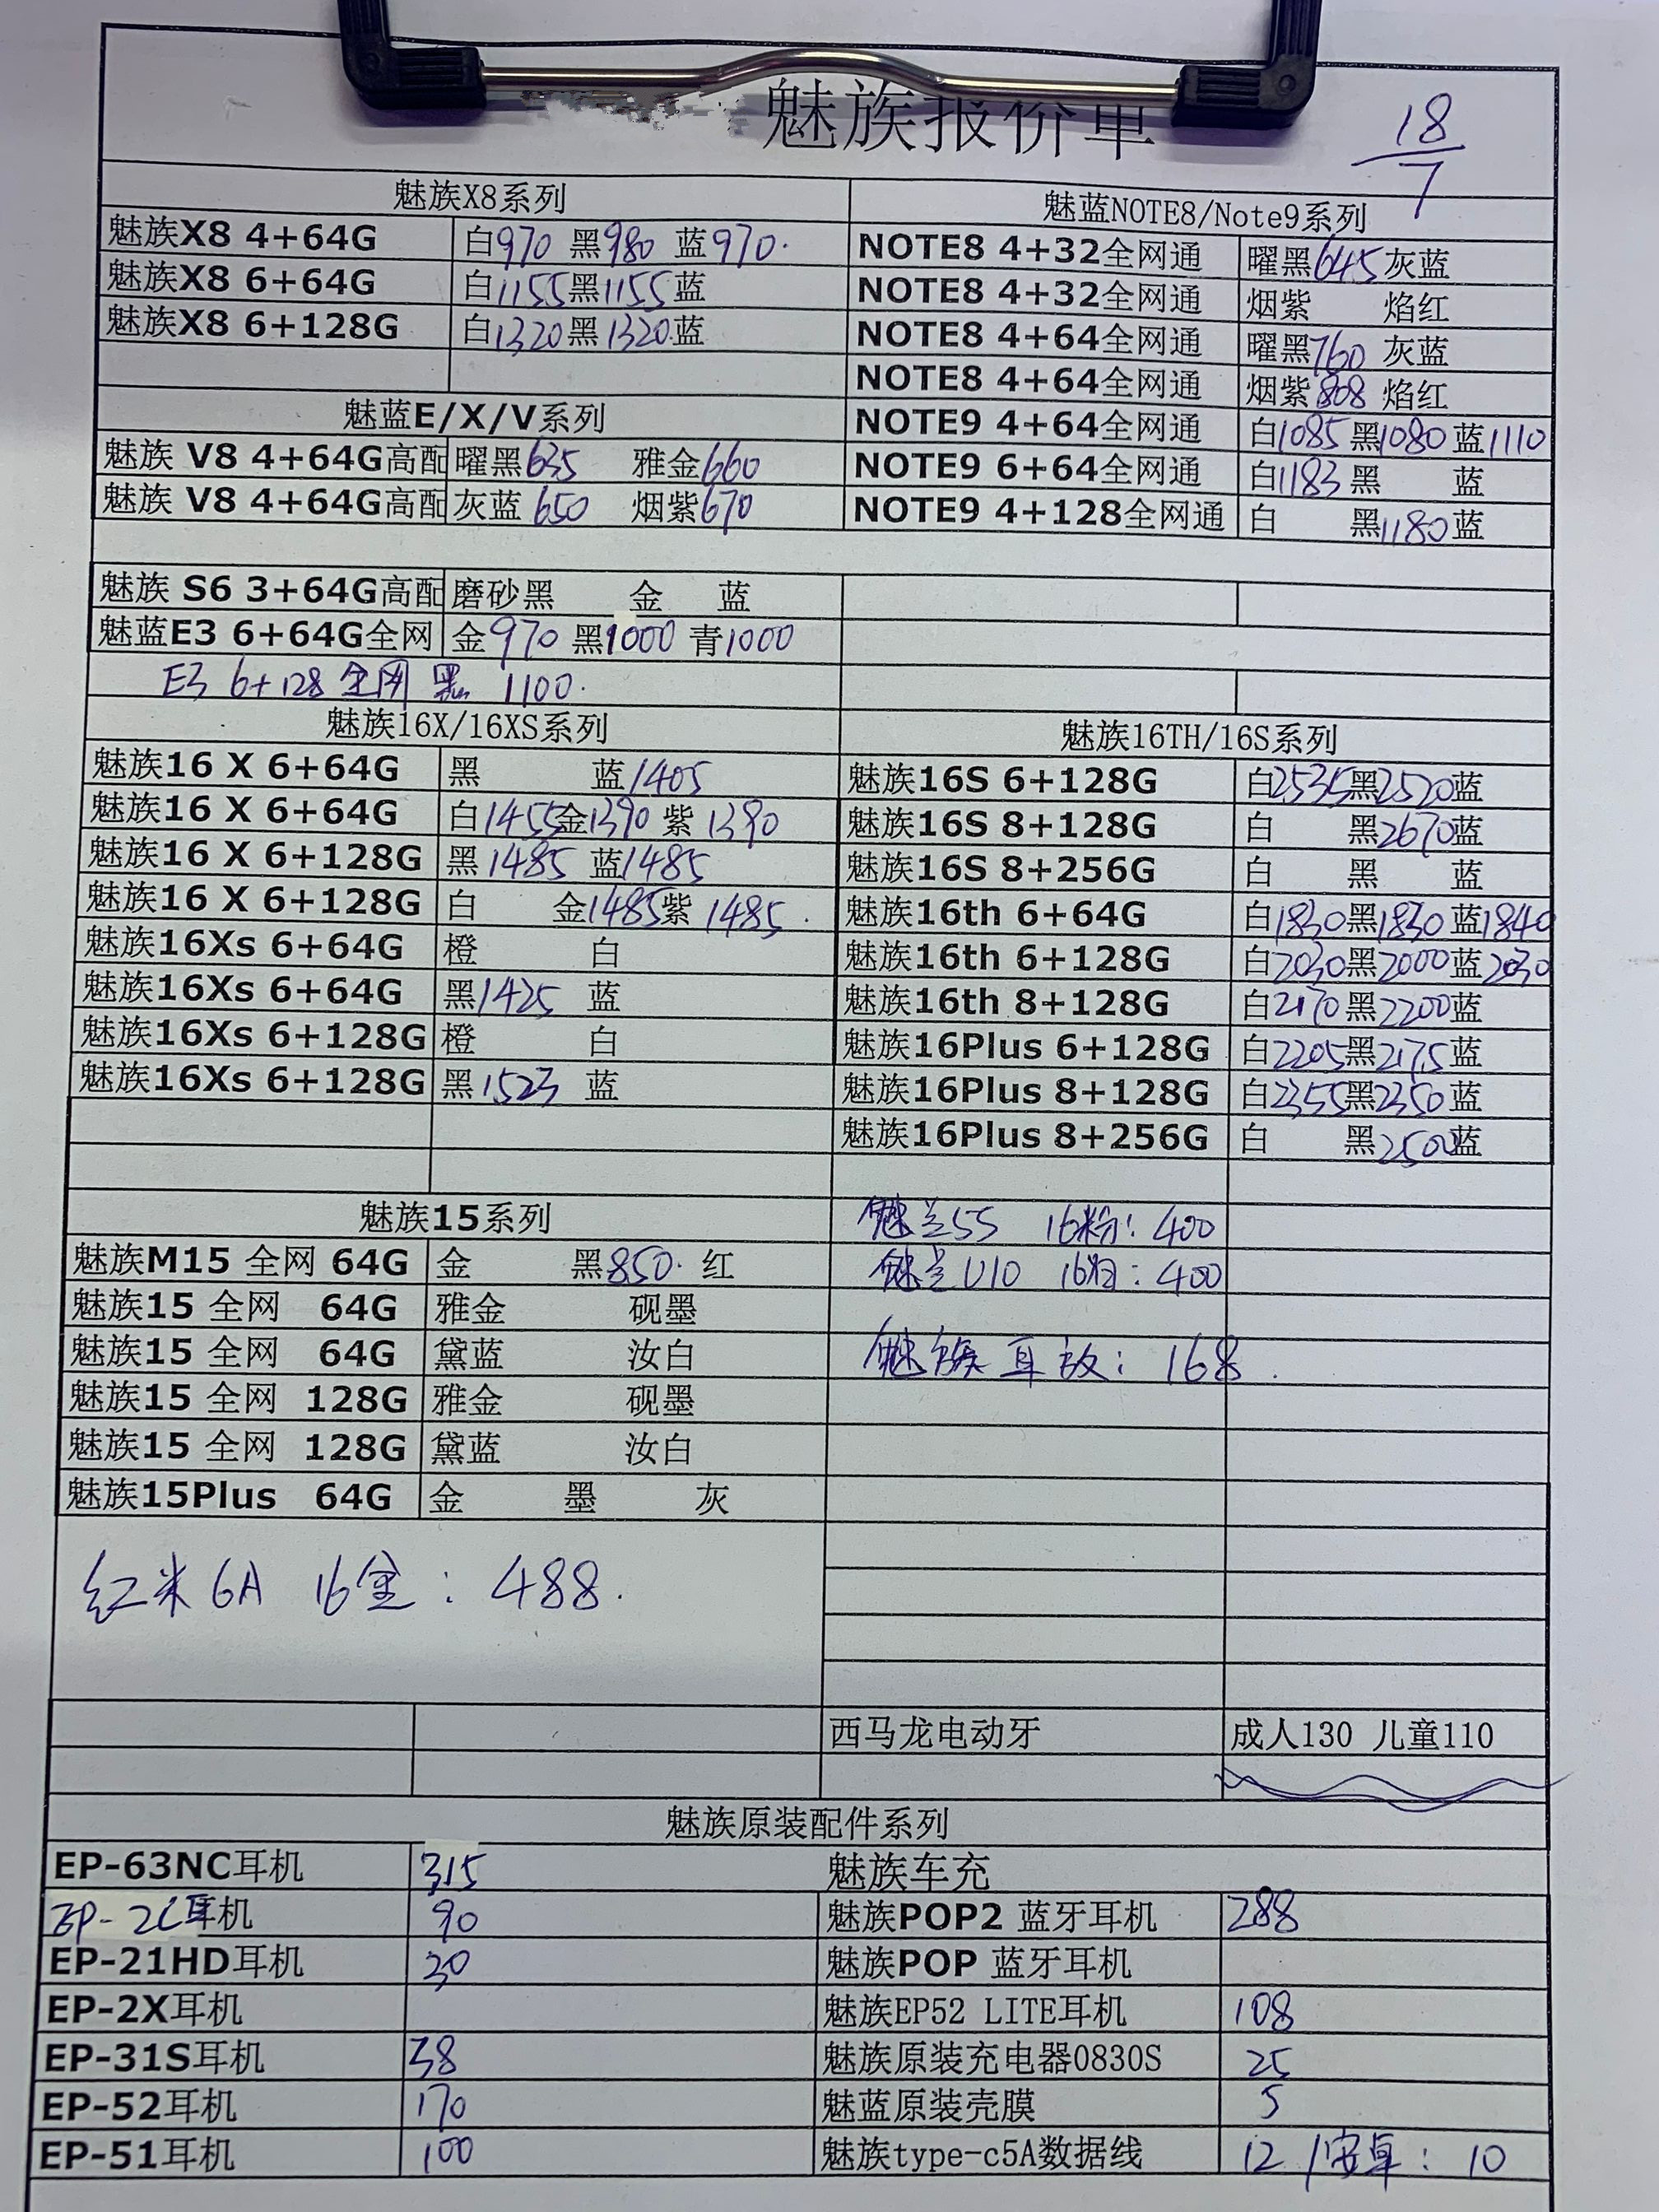 魅族报价单
18/7
魅族X8系列
魅族X8 4+64G 白970 黑980 蓝970.
魅族X8 6+64G 白1155黑1155蓝
魅族X8 6+128G 白1320黑1320.蓝
魅蓝E/X/V系列
魅族 V8 4+64G高配 曜黑635 雅金660
魅族 V8 4+64G高配 灰蓝650 烟紫670
魅蓝NOTE8/Note9系列
NOTE8 4+32全网通 曜黑645灰蓝
NOTE8 4+32全网通 烟紫 焰红
NOTE8 4+64全网通 曜黑760 灰蓝
NOTE8 4+64全网通 烟紫808 焰红
NOTE9 4+64全网通 白1085黑1080蓝1110
NOTE9 6+64全网通 白1183黑 蓝
NOTE9 4+128全网通 白 黑1180蓝
魅族 S6 3+64G高配 磨砂黑 金 蓝
魅蓝E3 6+64G全网 金970 黑1000 青1000
E3 6+128 全网 黑 1100.
魅族16X/16XS系列
魅族16 X 6+64G 黑 蓝1405
魅族16 X 6+64G 白1455金1390 紫1390
魅族16 X 6+128G 黑1485 蓝1485
魅族16 X 6+128G 白 金1485紫1485.
魅族16Xs 6+64G 橙 白
魅族16Xs 6+64G 黑1425 蓝
魅族16Xs 6+128G 橙 白
魅族16Xs 6+128G 黑1523 蓝
魅族16TH/16S系列
魅族16S 6+128G 白2535黑2520蓝
魅族16S 8+128G 白 黑2670蓝
魅族16S 8+256G 白 黑 蓝
魅族16th 6+64G 白1830黑1830蓝1840
魅族16th 6+128G 白2030黑2000蓝2030
魅族16th 8+128G 白2170黑2200蓝
魅族16Plus 6+128G 白2205黑2175蓝
魅族16Plus 8+128G 白2355黑2350蓝
魅族16Plus 8+256G 白 黑2500蓝
魅族15系列
魅族M15 全网 64G 金 黑850. 红
魅族15 全网 64G 雅金 砚墨
魅族15 全网 64G 黛蓝 汝白
魅族15 全网 128G 雅金 砚墨
魅族15 全网 128G 黛蓝 汝白
魅族15Plus 64G 金 墨 灰
魅兰5S 16粉: 400
魅兰U10 16: 400
魅族耳放: 168.
红米6A 16金: 488.
西马龙电动牙 成人130 儿童110
魅族原装配件系列
EP-63NC耳机 315 魅族车充
EP-2C耳机 90 魅族POP2 蓝牙耳机 288
EP-21HD耳机 30 魅族POP 蓝牙耳机
EP-2X耳机 魅族EP52 LITE耳机 108
EP-31S耳机 38 魅族原装充电器0830S 25
EP-52耳机 170 魅蓝原装壳膜 5
EP-51耳机 100 魅族type-c5A数据线 12 /安卓: 10